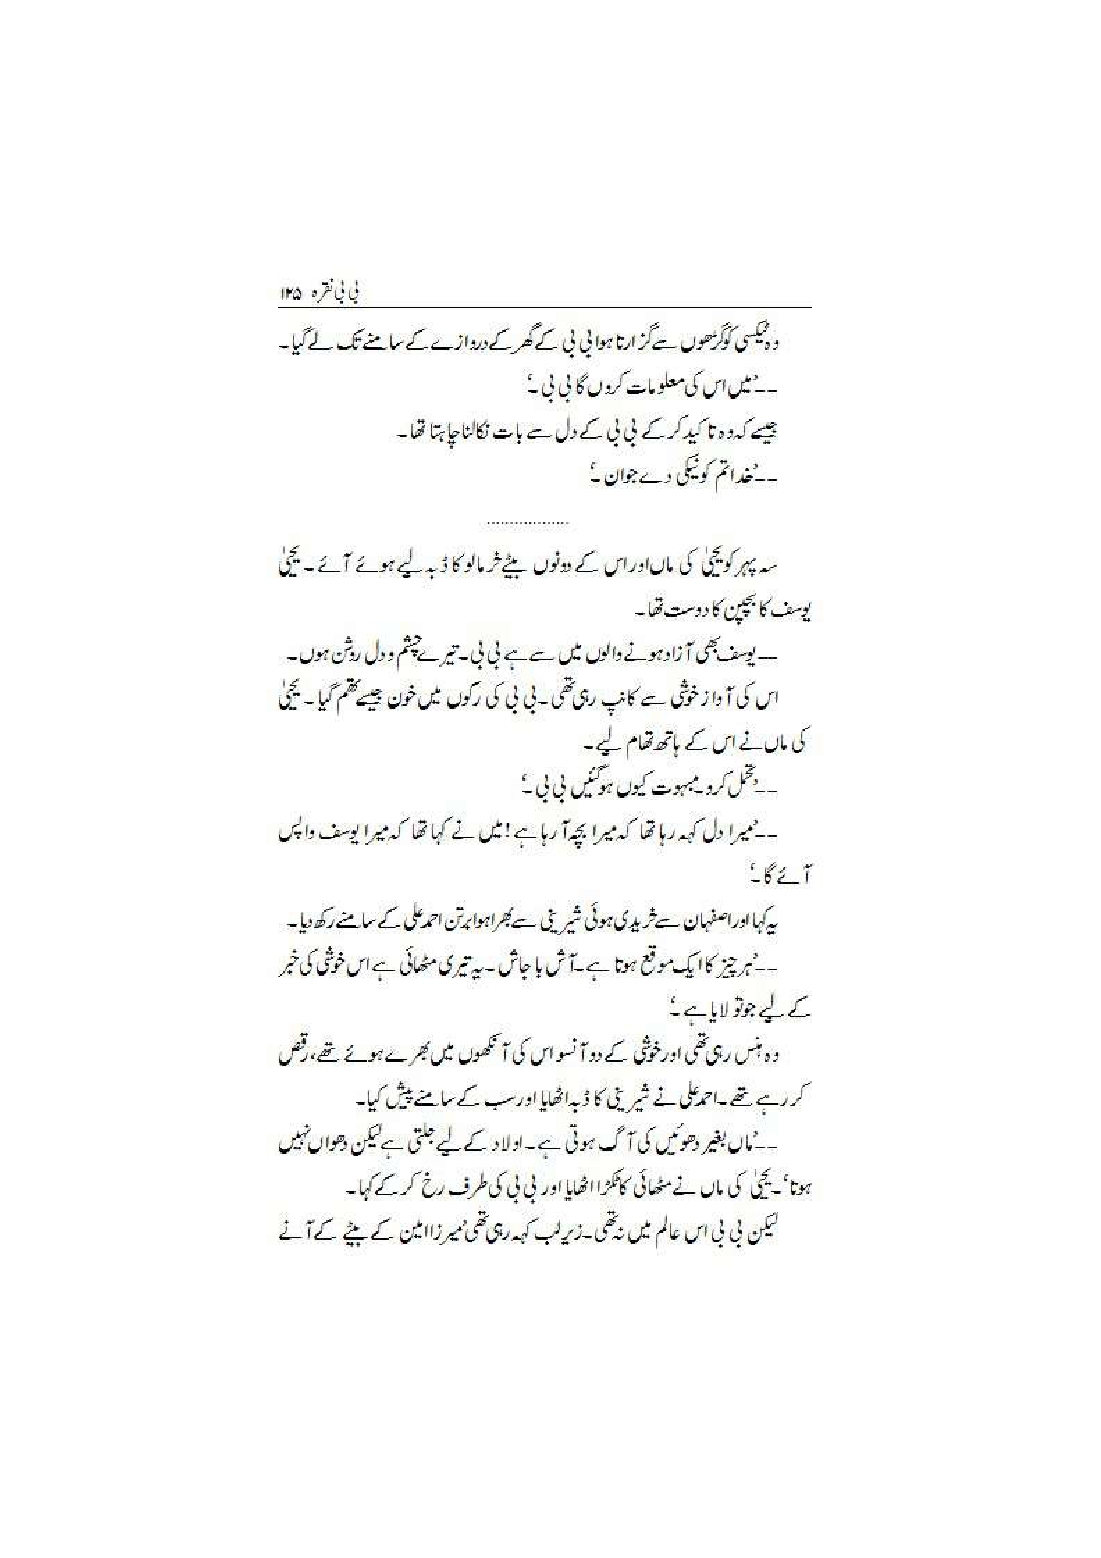 بی بی نقرہ ۱۲۵
وہ ٹیکسی کو گڑھوں سے گزارتا ہوا بی بی کے گھر کے دروازے کے سامنے تک لے گیا۔
__’میں اس کی معلومات کروں گا بی بی۔‘
جیسے کہ وہ تاکید کر کے بی بی کے دل سے بات نکالنا چاہتا تھا۔
__’خدا تم کو نیکی دے جوان۔‘
..................
سہ پہر کو یحییٰ کی ماں اور اس کے دونوں بیٹے خرمالو کا ڈبہ لیے ہوئے آئے۔ یحییٰ
یوسف کا بچپن کا دوست تھا۔
__یوسف بھی آزاد ہونے والوں میں سے ہے بی بی۔ تیرے چشم و دل روشن ہوں۔
اس کی آواز خوشی سے کانپ رہی تھی۔ بی بی کی رگوں میں خون جیسے تھم گیا۔ یحییٰ
کی ماں نے اس کے ہاتھ تھام لیے۔
__’تحمل کرو۔ مبہوت کیوں ہوگئیں بی بی۔‘
__’میرا دل کہہ رہا تھا کہ میرا بچہ آ رہا ہے! میں نے کہا تھا کہ میرا یوسف واپس
آئے گا۔‘
یہ کہا اور اصفہان سے خریدی ہوئی شیرینی سے بھرا ہوا برتن احمد علی کے سامنے رکھ دیا۔
__’ہر چیز کا ایک موقع ہوتا ہے۔ آش با جاش۔ یہ تیری مٹھائی ہے اس خوشی کی خبر
کے لیے جو تو لایا ہے۔‘
وہ ہنس رہی تھی اور خوشی کے دو آنسو اس کی آنکھوں میں بھرے ہوئے تھے، رقص
کر رہے تھے۔ احمد علی نے شیرینی کا ڈبہ اٹھایا اور سب کے سامنے پیش کیا۔
__’ماں بغیر دھوئیں کی آگ ہوتی ہے۔ اولاد کے لیے جلتی ہے لیکن دھواں نہیں
ہوتا‘۔ یحییٰ کی ماں نے مٹھائی کا ٹکڑا اٹھایا اور بی بی کی طرف رخ کر کے کہا۔
لیکن بی بی اس عالم میں نہ تھی۔ زیر لب کہہ رہی تھی ’میرزا امین کے بیٹے کے آنے